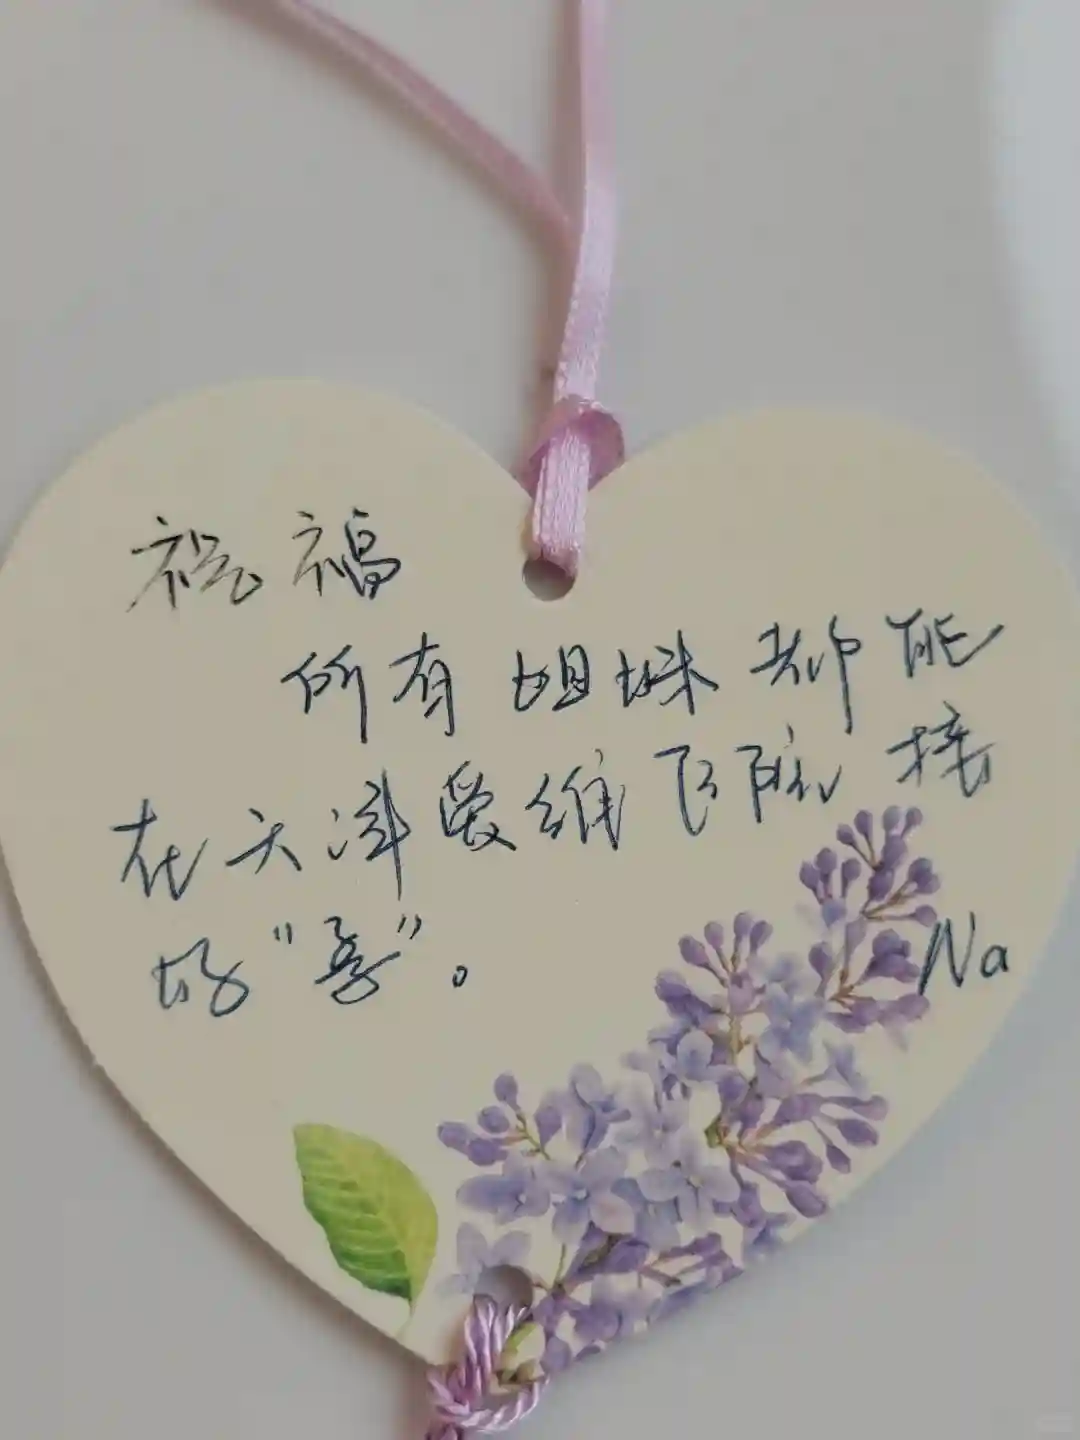 祝福
所有姐妹都能
在天津爱维飞院接
好"孕"。
Na